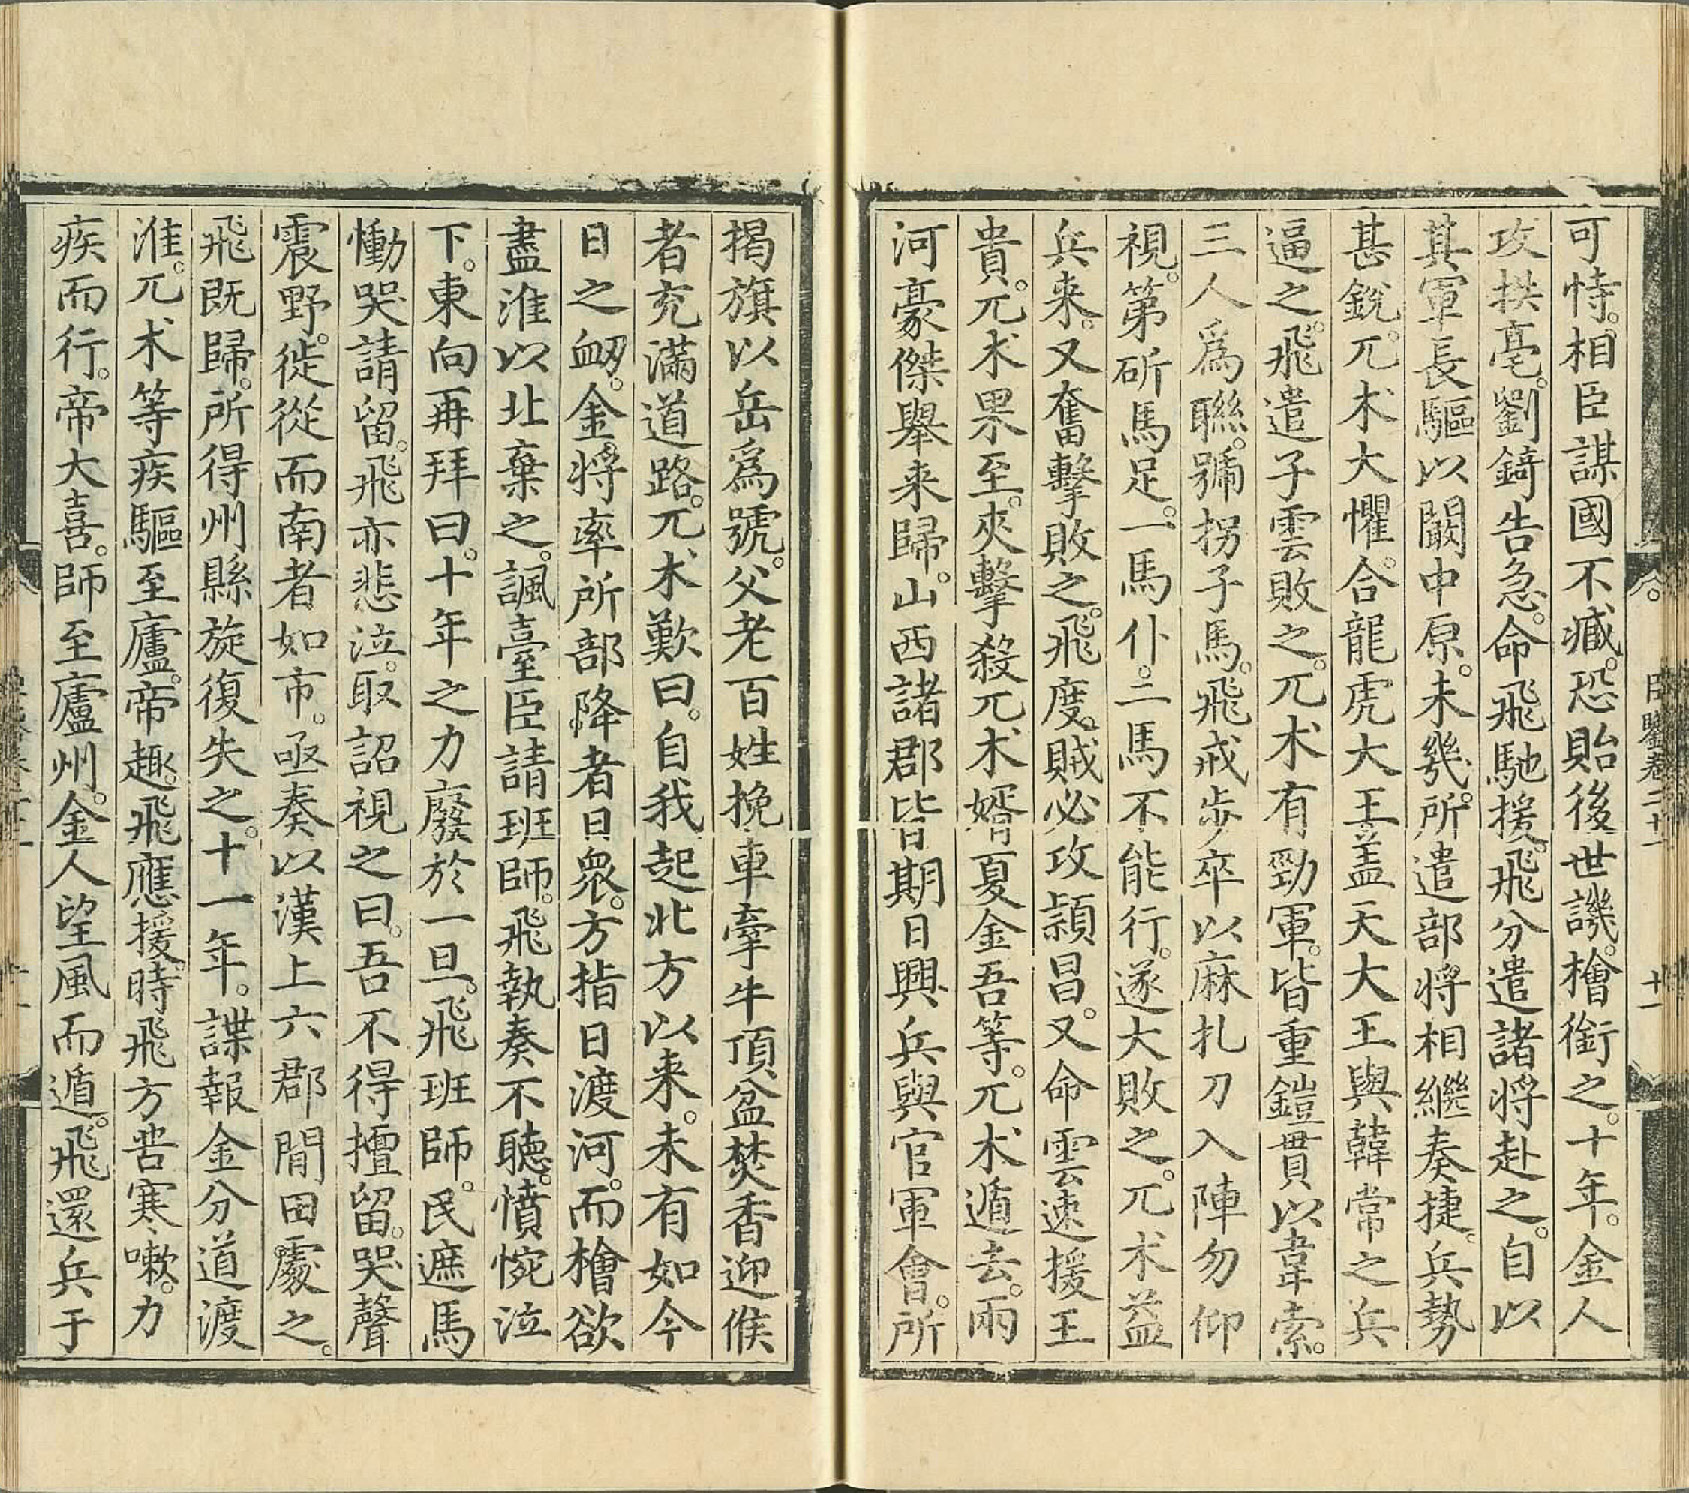 可恃。相臣謀國不臧。恐貽後世譏。檜銜之。十年。金人
攻拱亳。劉錡告急。命飛馳援。飛分遣諸將赴之。自以
其軍長驅以闞中原。未幾。所遣部將相繼奏捷。兵勢
甚銳。兀朮大懼。合龍虎大王蓋天大王與韓常之兵
逼之。飛遣子雲敗之。兀朮有勁軍。皆重鎧貫以韋索。
三人爲聯。號拐子馬。飛戒步卒以麻扎刀入陣勿仰
視。第斫馬足。一馬仆。二馬不能行。遂大敗之。兀朮益
兵来。又奮擊敗之。飛度。賊必攻潁昌。又命雲速援王
貴。兀朮果至。夾擊殺兀朮婿夏金吾等。兀朮遁去。兩
河豪傑舉来歸。山西諸郡皆期日興兵與官軍會。所
揭旗以岳爲號。父老百姓挽車牽牛頂盆焚香迎候
者充滿道路。兀朮歎曰。自我起北方以来。未有如今
日之衂。金將率所部降者日衆。方指日渡河。而檜欲
盡淮以北棄之。諷臺臣請班師。飛執奏不聽。憤惋泣
下。東向再拜曰。十年之力廢於一旦。飛班師。民遮馬
慟哭請留。飛亦悲泣。取詔視之曰。吾不得擅留。哭聲
震野。徙從而南者如市。亟奏以漢上六郡閒田處之。
飛既歸。所得州縣旋復失之。十一年。諜報金分道渡
淮。兀朮等疾驅至廬。帝趣飛應援。時飛方苦寒嗽。力
疾而行。帝大喜。師至廬州。金人望風而遁。飛還兵于